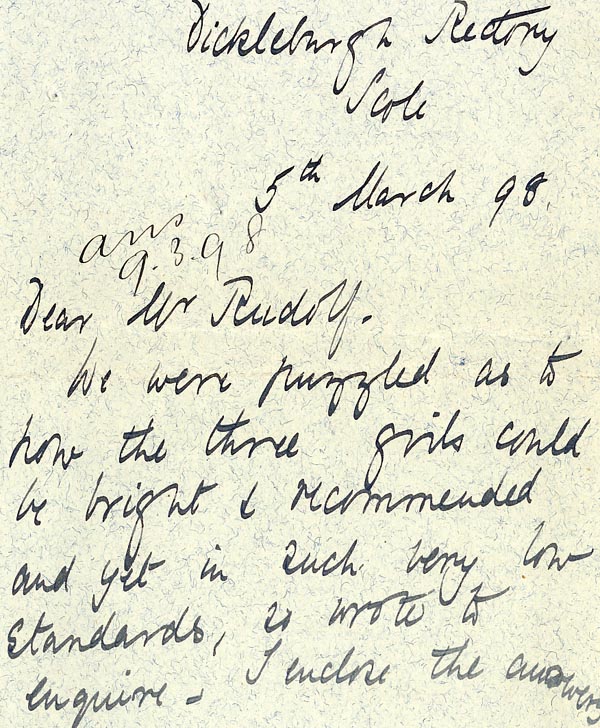 Dickleburgh Rectory
Scole
5th March 98.
ans
9.3.98
Dear Mr Rudolf.
We were puzzled as to
how the three girls could
be bright & recommended
and yet in such very low
standards, so wrote to
enquire - I enclose the answers